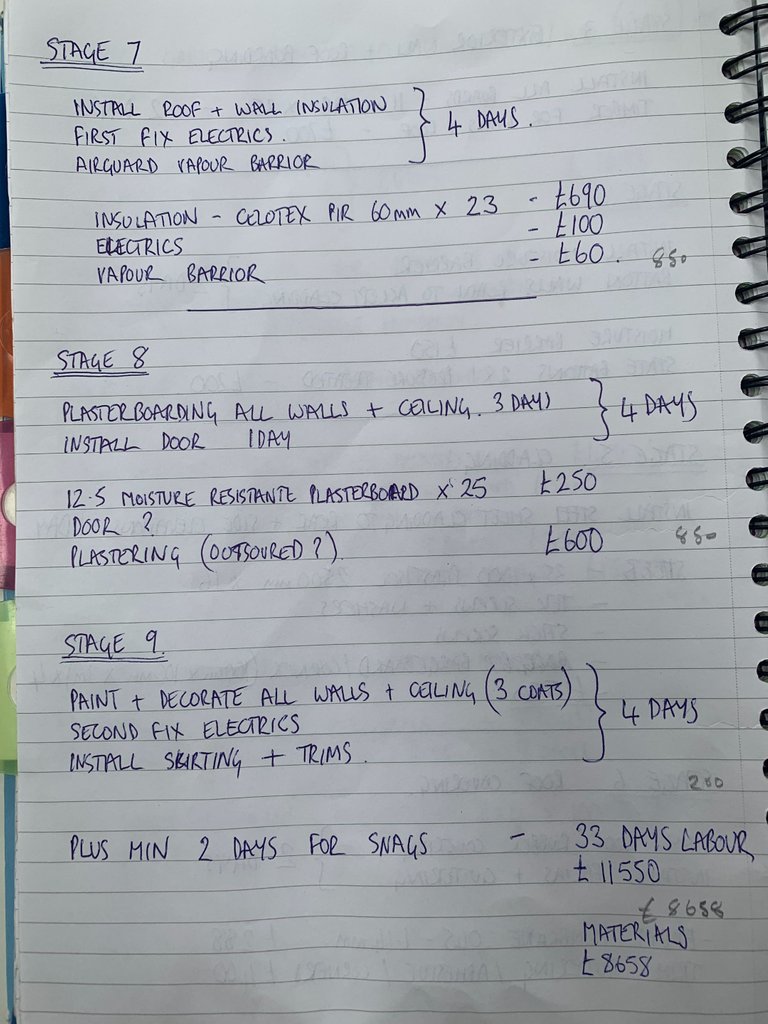 STAGE 7
INSTALL ROOF + WALL INSULATION
FIRST FIX ELECTRICS.
AIRGUARD VAPOUR BARRIOR
} 4 DAYS.
INSULATION - CELOTEX PIR 60mm X 23 - £690
ELECTRICS - £100
VAPOUR BARRIOR - £60. 850
STAGE 8
PLASTERBOARDING ALL WALLS + CEILING. 3 DAYS
INSTALL DOOR 1 DAY
} 4 DAYS
12.5 MOISTURE RESISTANTE PLASTERBOARD X 25 £250
DOOR ?
PLASTERING (OUTSOURED?) £600 850
STAGE 9.
PAINT + DECORATE ALL WALLS + CEILING (3 COATS)
SECOND FIX ELECTRICS
INSTALL SKIRTING + TRIMS.
} 4 DAYS
200
PLUS MIN 2 DAYS FOR SNAGS - 33 DAYS LABOUR
£11550
£8658
MATERIALS
£8658